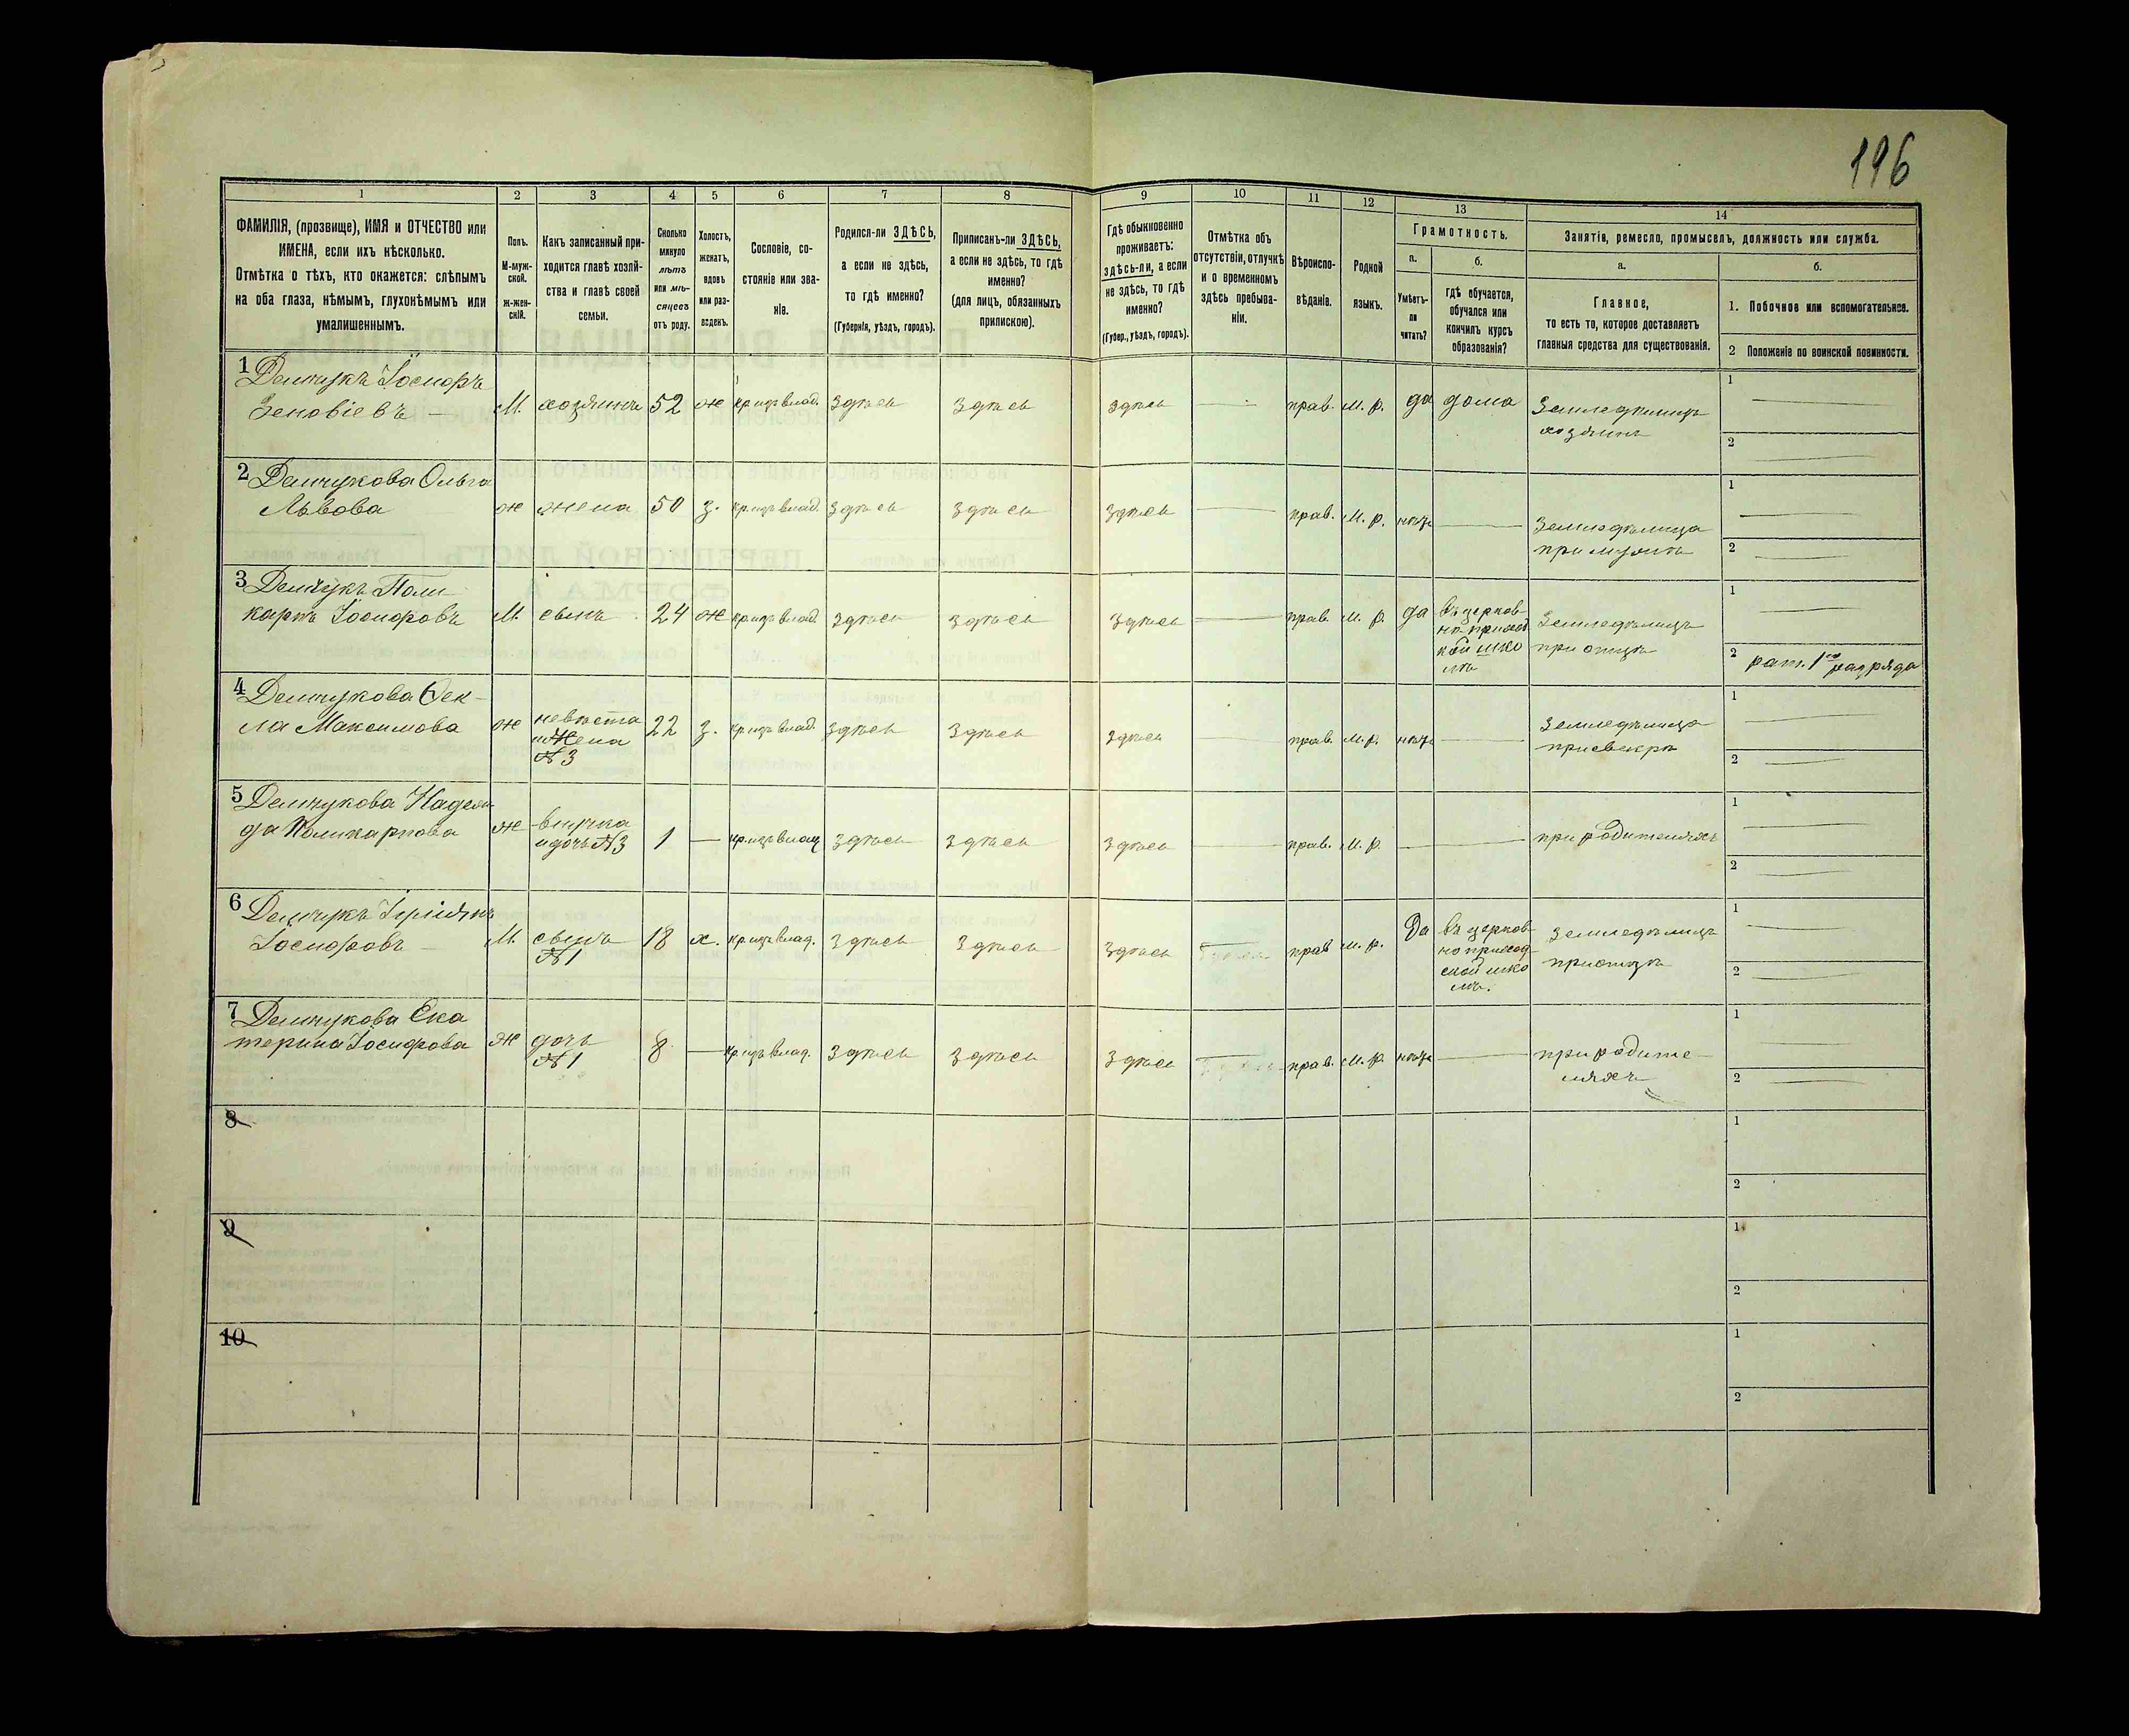 196
1
2
3
4
5
6
7
8
9
10
11
12
13
14
ФАМИЛІЯ, (прозвище), ИМЯ и ОТЧЕСТВО или
ИМЕНА, если ихъ нѣсколько.
Отмѣтка о тѣхъ, кто окажется: слѣпымъ
на оба глаза, нѣмымъ, глухонѣмымъ или
умалишеннымъ.
Полъ.
М-муж-
ской.
ж-жен-
скій.
Какъ записанный при-
ходится главѣ хозяй-
ства и главѣ своей
семьи.
Сколько
минуло
лѣтъ
или мѣ-
сяцевъ
отъ роду.
Холостъ,
женатъ,
вдовъ
или раз-
веденъ.
Сословіе, со-
стояніе или зва-
ніе.
Родился-ли ЗДѢСЬ,
а если не здѣсь,
то гдѣ именно?
(Губернія, уѣздъ, городъ).
Приписанъ-ли ЗДѢСЬ,
а если не здѣсь, то гдѣ
именно?
(для лицъ, обязанныхъ
припискою).
Гдѣ обыкновенно
проживаетъ:
здѣсь-ли, а если
не здѣсь, то гдѣ
именно?
(Губер., уѣздъ, городъ).
Отмѣтка объ
отсутствіи, отлучкѣ
и о временномъ
здѣсь пребыва-
ніи.
Вѣроиспо-
вѣданіе.
Родной
языкъ.
Грамотность.
а.
Умѣетъ-
ли
читать?
б.
Гдѣ обучается,
обучался или
кончилъ курсъ
образованія?
Занятіе, ремесло, промыселъ, должность или служба.
а.
Главное,
то есть то, которое доставляетъ
главныя средства для существованія.
б.
1. Побочное или вспомогательное.
2 Положеніе по воинской повинности.
1 Демчукъ Іосифъ
Зеновіевъ
М. хозяинъ 52 ж кр.изъ влад. здѣсь здѣсь здѣсь прав. м. р. да дома
Земледѣлецъ
хозяинъ
1
2
2 Демчукова Ольга
Львова
ж жена 50 з. кр.изъ влад. здѣсь здѣсь здѣсь прав. м. р. нѣтъ
Земледѣлица
при мужѣ
1
2
3 Демчукъ Поли
карпъ Іосифовъ
М. сынъ 24 ж кр.изъ влад. здѣсь здѣсь здѣсь прав. м. р. да
въ церков-
но-приход
кой шко
лѣ
Земледѣлецъ
при отцѣ
1
2 рат. 1го разряда
4 Демчукова Ѳек-
ла Максимова
ж невѣста
и жена
№ 3
22 з. кр.изъ влад. здѣсь здѣсь здѣсь прав. м. р. нѣтъ
Земледѣлица
при свекрѣ
1
2
5 Демчукова Надеж
да Поликарпова
ж внучка
и дочь № 3
1 кр.изъ влад здѣсь здѣсь здѣсь прав. м. р.
при родителяхъ
1
2
6 Демчукъ
Іосифовъ
М. сынъ
№ 1
18 х. кр.изъ влад. здѣсь здѣсь здѣсь прав м. р. да
въ церков-
но приход-
ской шко
лѣ.
земледѣлецъ
при отцѣ
1
2
7 Демчукова Ека
терина Іосифова
ж дочь
№ 1
8 кр.изъ влад. здѣсь здѣсь здѣсь прав. м. р. нѣтъ
при родите-
ляхъ
1
2
8
1
2
9
1
2
10
1
2